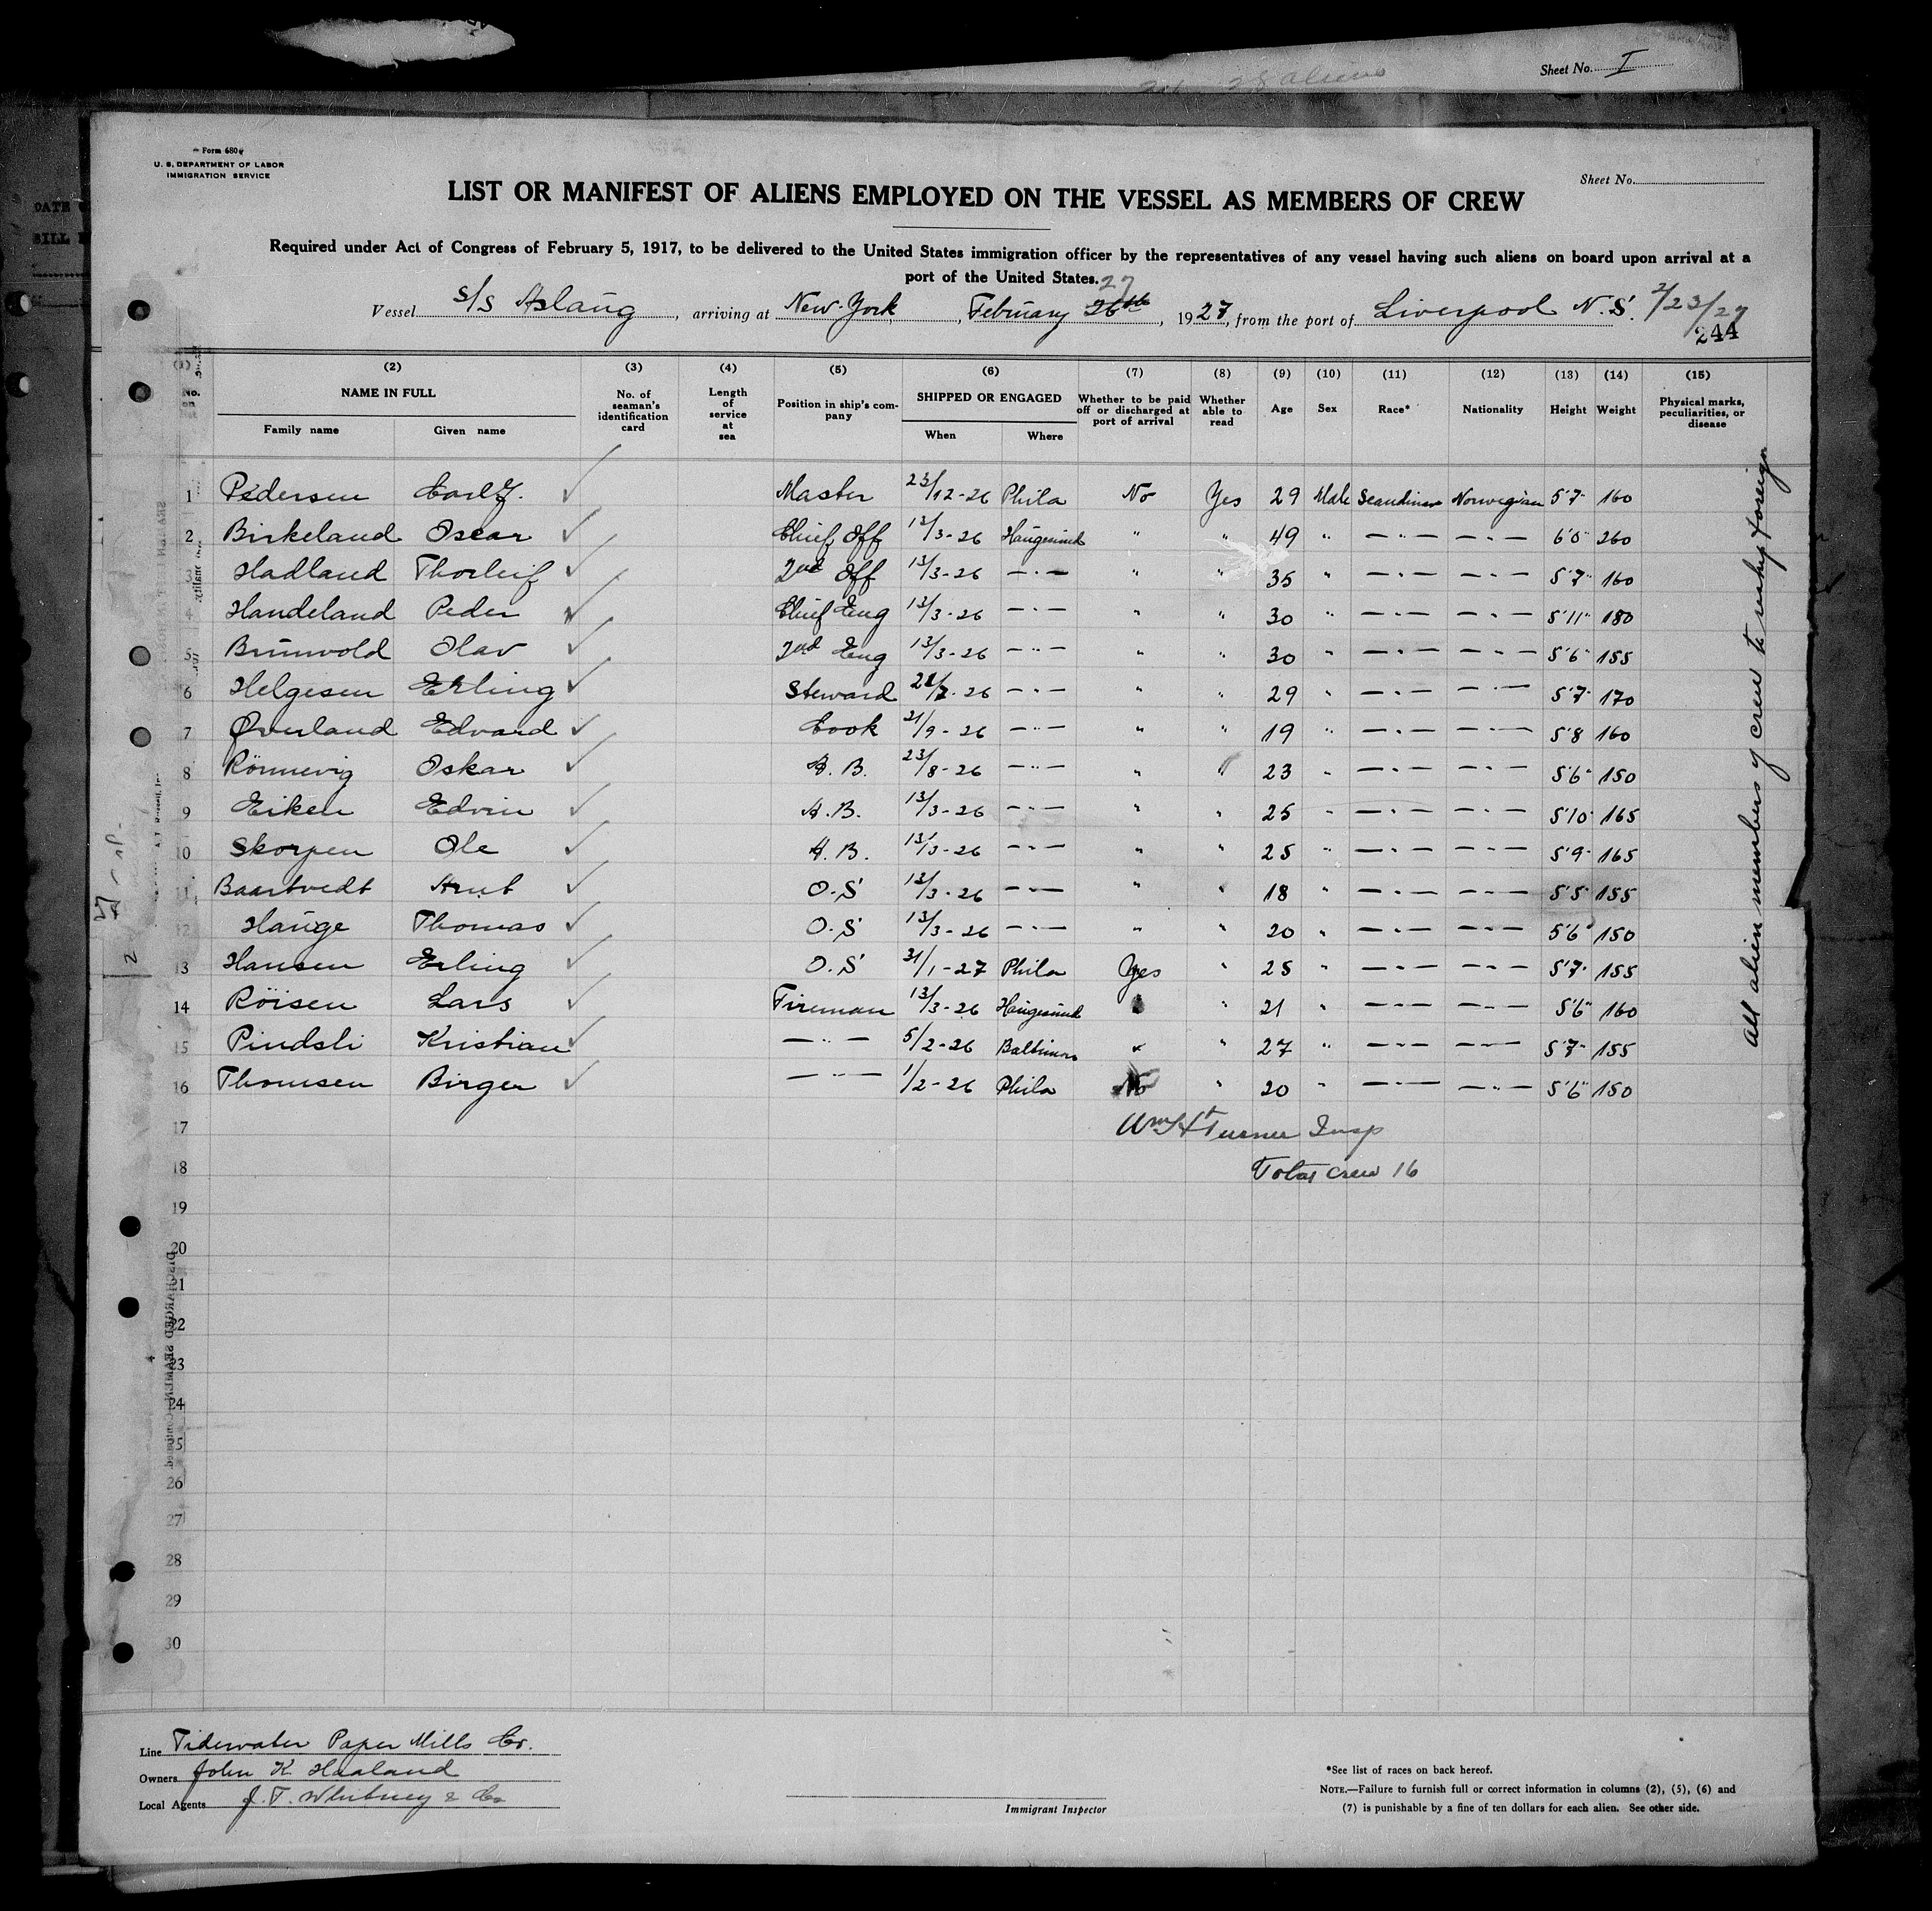 Sheet No. I
28 aliens
Form 680
U. S. DEPARTMENT OF LABOR
IMMIGRATION SERVICE
Sheet No.
LIST OR MANIFEST OF ALIENS EMPLOYED ON THE VESSEL AS MEMBERS OF CREW
Required under Act of Congress of February 5, 1917, to be delivered to the United States immigration officer by the representatives of any vessel having such aliens on board upon arrival at a
port of the United States.
27
Vessel S/S Aslaug, arriving at New York, February 26th, 1927, from the port of Liverpool N.S. 2/23/27
244
(2) (3) (4) (5) (6) (7) (8) (9) (10) (11) (12) (13) (14) (15)
No. on list NAME IN FULL Family name Given name No. of seaman's identification card Length of service at sea Position in ship's company SHIPPED OR ENGAGED When Where Whether to be paid off or discharged at port of arrival Whether able to read Age Sex Race* Nationality Height Weight Physical marks, peculiarities, or disease
1 Pedersen Carl J. ✓ Master 23/12-26 Phila No Yes 29 Male Scandinav Norwegian 5'7" 160
2 Birkeland Oscar ✓ Chief Off 13/3-26 Haugesund " " 49 " —"— —"— 6'0" 260
3 Hadland Thorleif ✓ 2nd Off 13/3-26 —"— " " 35 " —"— —"— 5'7" 160
4 Handeland Peder ✓ Chief Eng 13/3-26 —"— " " 30 " —"— —"— 5'11" 180
5 Brunvold Olav ✓ 2nd Eng 13/3-26 —"— " " 30 " —"— —"— 5'6" 155
6 Helgesen Erling ✓ Steward 21/7-26 —"— " " 29 " —"— —"— 5'7" 170
7 Øverland Edvard ✓ Cook 21/9-26 —"— " " 19 " —"— —"— 5'8 160
8 Rönnevig Oskar ✓ A.B. 23/8-26 —"— " " 23 " —"— —"— 5'6" 150
9 Eiken Edvin ✓ A.B. 13/3-26 —"— " " 25 " —"— —"— 5'10" 165
10 Skorpen Ole ✓ A.B. 13/3-26 —"— " " 25 " —"— —"— 5'9" 165
11 Baartvedt Knut ✓ O.S 13/3-26 —"— " " 18 " —"— —"— 5'5" 155
12 Hauge Thomas ✓ O.S 13/3-26 —"— " " 20 " —"— —"— 5'6" 150
13 Hansen Erling ✓ O.S 31/1-27 Phila Yes " 25 " —"— —"— 5'7" 155
14 Röisen Lars ✓ Fireman 13/3-26 Haugesund " " 21 " —"— —"— 5'6" 160
15 Pindsli Kristian ✓ —"— 5/2-26 Baltimore " " 27 " —"— —"— 5'7" 155
16 Thomsen Birger ✓ —"— 1/2-26 Phila No " 20 " —"— —"— 5'6" 150
17 Wm H Turner Insp
18 Total crew 16
19
20
21
22
23
24
25
26
27
28
29
30
All alien members of crew to reship foreign
DISCHARGED SEAMEN—Continued
Line Tidewater Paper Mills Co.
Owners John K Haaland
Local Agents J. T. Whitney & Co
Immigrant Inspector
*See list of races on back hereof.
NOTE.—Failure to furnish full or correct information in columns (2), (5), (6) and
(7) is punishable by a fine of ten dollars for each alien. See other side.